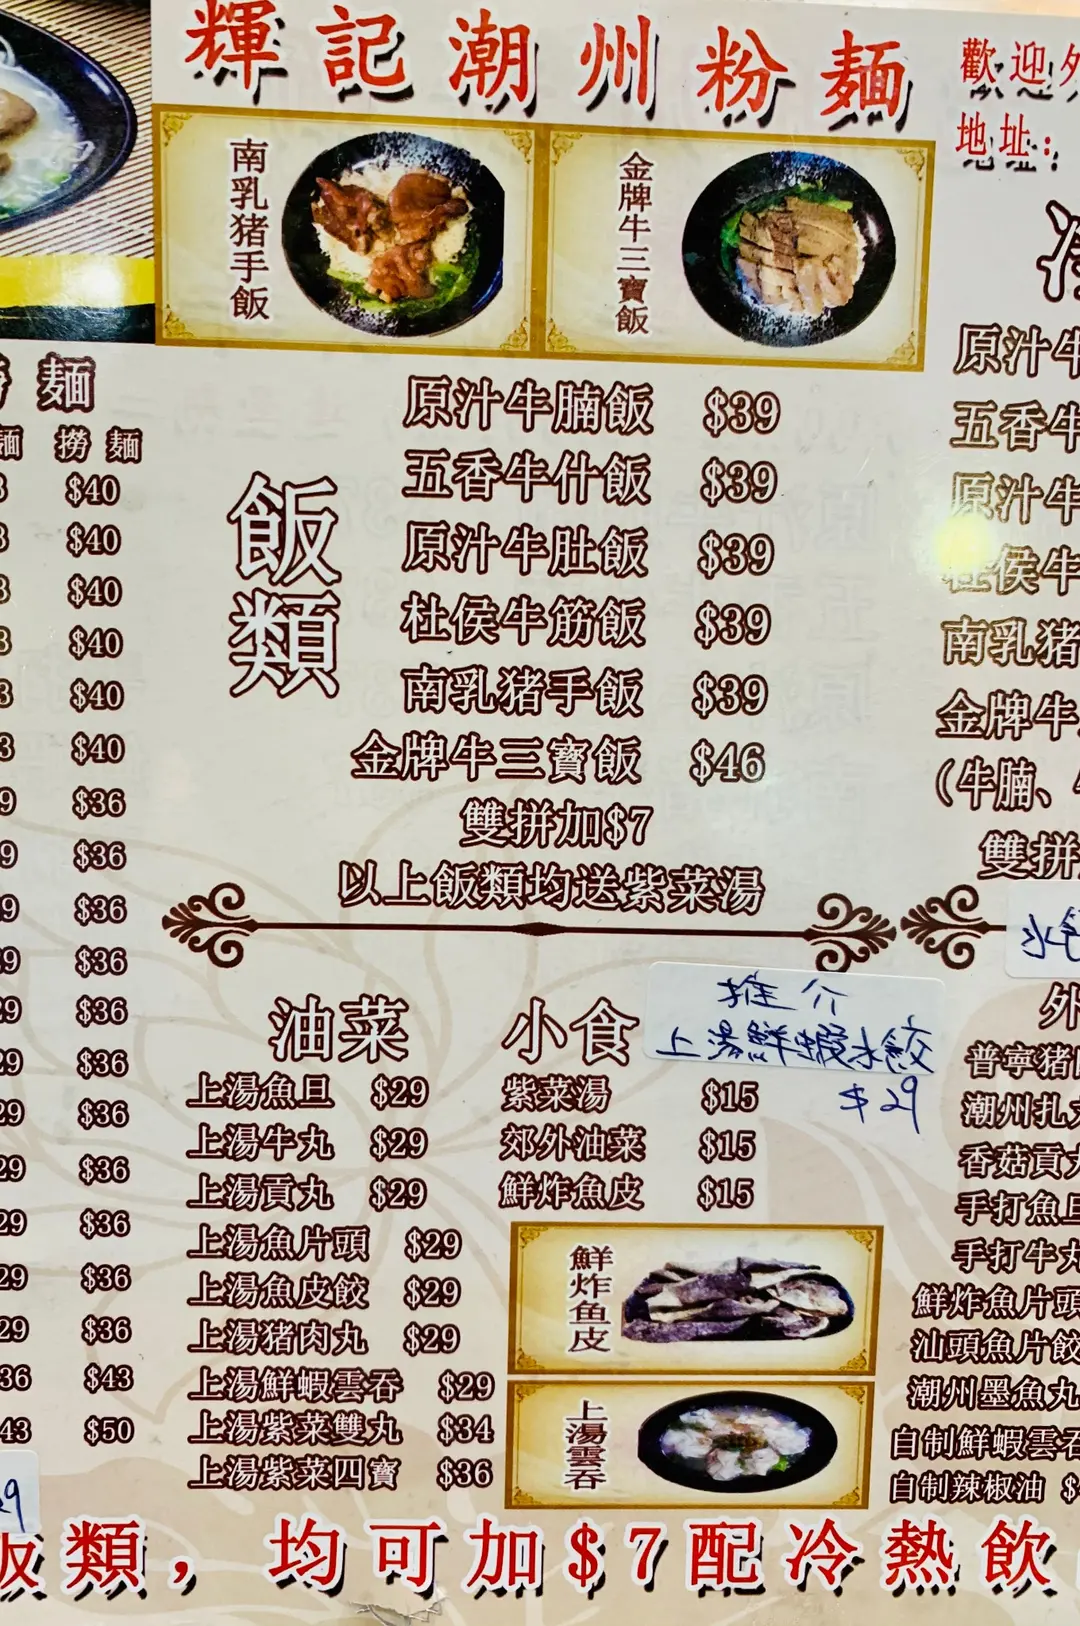 輝記潮州粉麵
歡迎
地址:
南乳猪手飯
金牌牛三寶飯
麵
撈麵
$40
$40
$40
$40
$40
$40
$36
$36
$36
$36
$36
$36
$36
$36
$36
$36
$36
$43
$50
飯類
原汁牛腩飯 $39
五香牛什飯 $39
原汁牛肚飯 $39
杜侯牛筋飯 $39
南乳猪手飯 $39
金牌牛三寶飯 $46
雙拼加$7
以上飯類均送紫菜湯
原汁牛
五香牛
原汁牛
杜侯牛
南乳猪
金牌牛
(牛腩、
雙拼
油菜
上湯魚旦 $29
上湯牛丸 $29
上湯貢丸 $29
上湯魚片頭 $29
上湯魚皮餃 $29
上湯猪肉丸 $29
上湯鮮蝦雲吞 $29
上湯紫菜雙丸 $34
上湯紫菜四寶 $36
小食
紫菜湯 $15
郊外油菜 $15
鮮炸魚皮 $15
推介
上湯鮮蝦水餃
$29
鮮炸鱼皮
上湯雲吞
外
普寧猪
潮州扎
香菇貢丸
手打魚旦
手打牛丸
鮮炸魚片頭
汕頭魚片餃
潮州墨魚丸
自制鮮蝦雲吞
自制辣椒油 $
飯類，均可加$7配冷熱飲